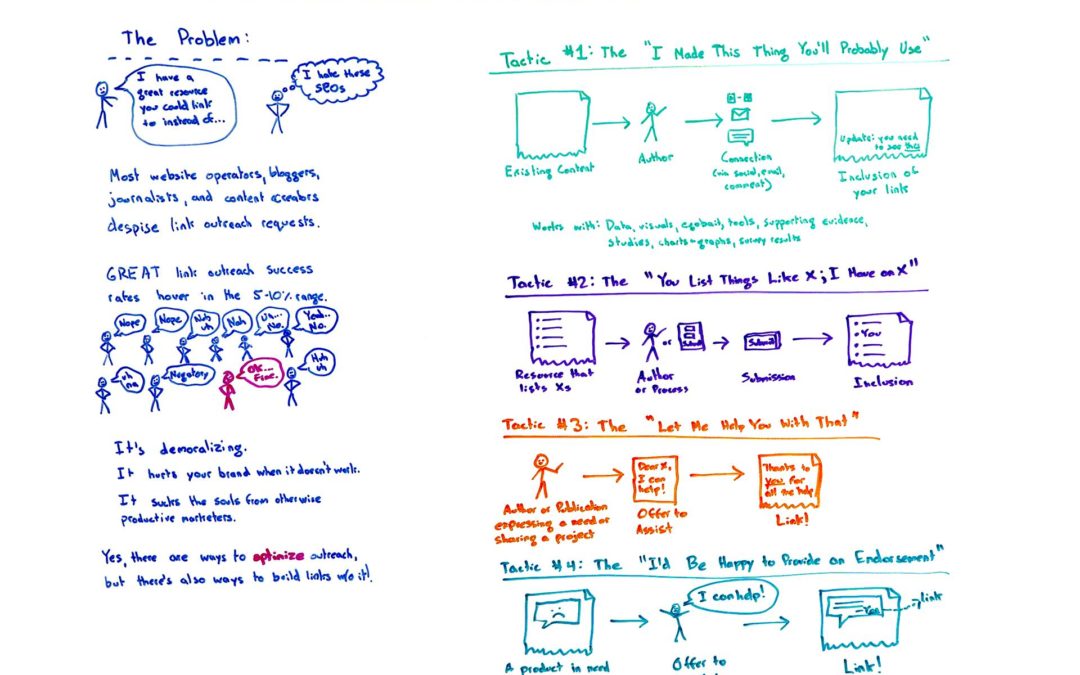 The Problem:
I have a
great resource
you could link
to instead of...
I hate these
SEOs
Most website operators, bloggers,
journalists, and content creators
despise link outreach requests.
GREAT link outreach success
rates hover in the 5-10% range.
Nope
Nope
Nuh
uh
Nah
Uh...
No.
Yeah...
No.
Uh
no
Negatory
OK...
Fine.
Nuh
uh
It's demoralizing.
It hurts your brand when it doesn't work.
It sucks the souls from otherwise
productive marketers.
Yes, there are ways to optimize outreach,
but there's also ways to build links w/o it!
Tactic #1: The "I Made This Thing You'll Probably Use"
Existing Content
Author
Connection
(via social, email,
comment)
Update: you need
to see this
Inclusion of
your link
Works with: Data, visuals, egobait, tools, supporting evidence,
studies, charts + graphs, survey results
Tactic #2: The "You List Things Like X; I Have an X"
Resource that
lists Xs
or
Submit
Author
or Process
Submit
Submission
You
Inclusion
Tactic #3: The "Let Me Help You With That"
Author or Publication
expressing a need or
sharing a project
Dear X,
I can
help!
Offer to
Assist
Thanks to
you for
all the help
Link!
Tactic #4: The "I'd Be Happy to Provide an Endorsement"
A product in need
I can help!
Offer to
You
link
Link!